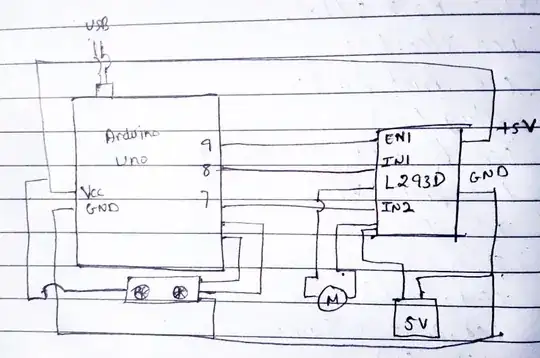 USB
Arduino
Uno
9
8
7
Vcc
GND
EN1
IN1
L293D
IN2
+5V
GND
M
5V